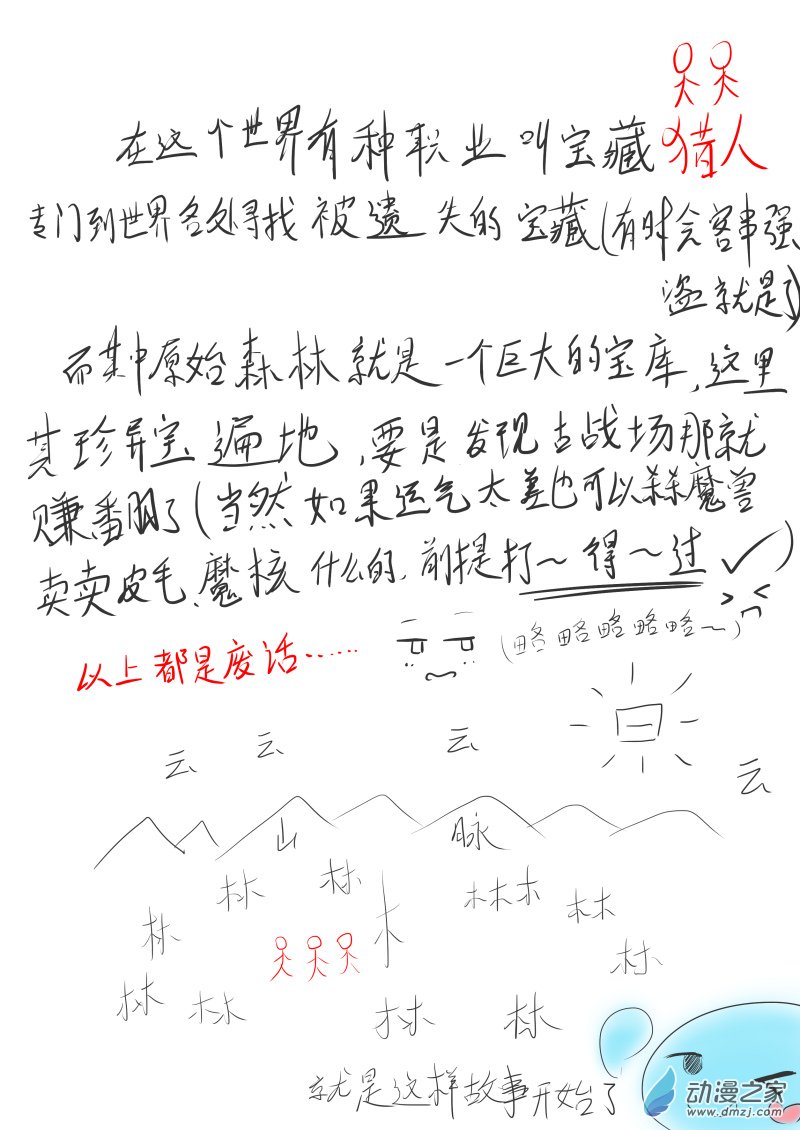 在这个世界有种职业叫宝藏猎人
专门到世界各处寻找被遗失的宝藏(有时会客串强
盗就是了)
而其中原始森林就是一个巨大的宝库,这里
其珍异宝遍地,要是发现古战场那就
赚番月了(当然如果运气太差也可以杀杀魔兽
卖卖皮毛、魔核什么的,前提打~得~过✓)
以上都是废话……
(略略略略略~)
日
云 云 云
云
山 脉
林 林 木木木 林
林 木
林
林 林 林 林
就是这样故事开始了
动漫之家
www.dmzj.com